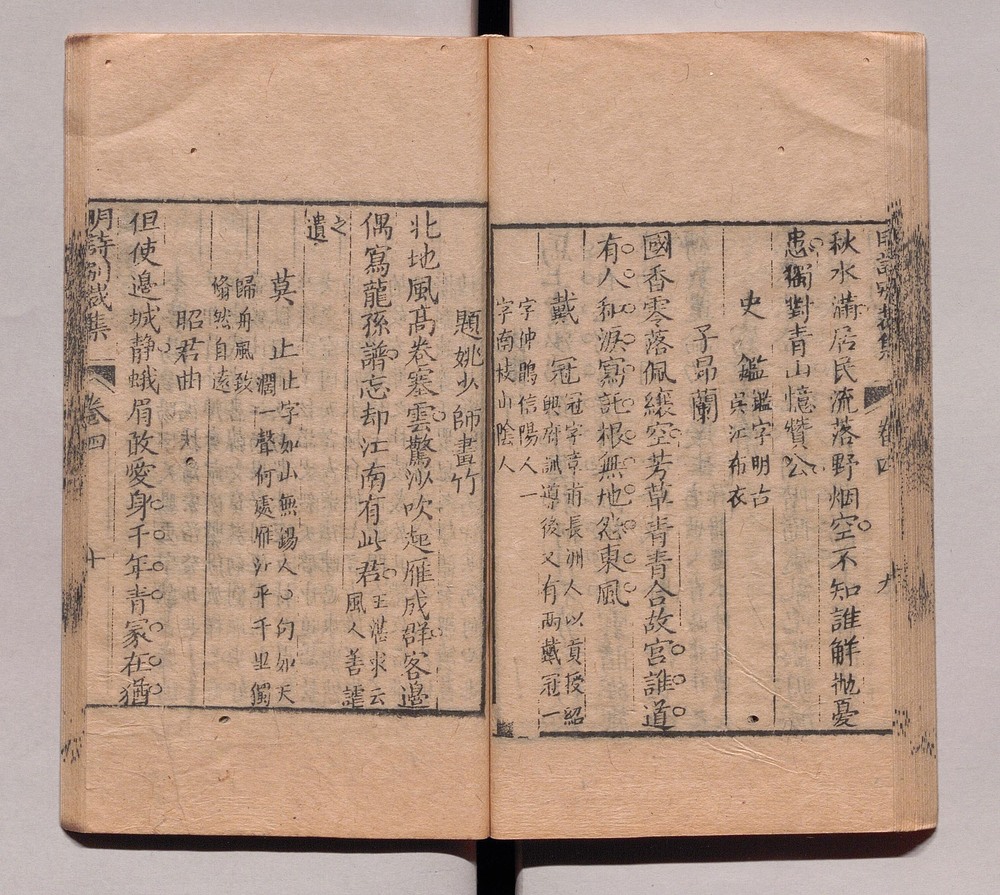 秋水滿居民流落野烟空不知誰解抛憂
患獨對青山憶贊公
史鑑鑑字明古
吳江布衣
子昂蘭
國香零落佩纕空芳草青青合故宮誰道
有人和淚寫託根無地怨東風
戴冠冠字章甫長洲人以貢授紹
興府訓導後又有兩戴冠一
字仲鶡信陽人一
字南枝山陰人
題姚少師畫竹
北地風高卷塞雲驚沙吹起雁成群客邊
偶寫龍孫譜忘却江南有此君王湛求云
風人善謔
之
遺
莫止止字如山無錫人句如天
濶一聲何處雁江平千里獨
歸舟風致
翛然自遠
昭君曲
但使邊城静蛾眉敢愛身千年青冢在猶
明詩別裁集
卷四
十
明詩別裁集
卷四
九